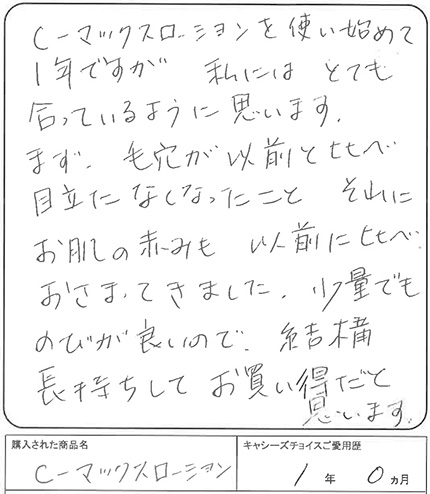 C-マックスローションを使い始めて
1年ですが 私には とても
合っているように思います。
まず、毛穴が以前と比べ
目立たなくなったこと それに
お肌の赤みも 以前に比べ
おさまってきました。少量でも
のびが良いので、結構
長持ちして お買い得だと
思います。
購入された商品名
C-マックスローション
キャシーズチョイスご愛用歴
1年 0ヵ月